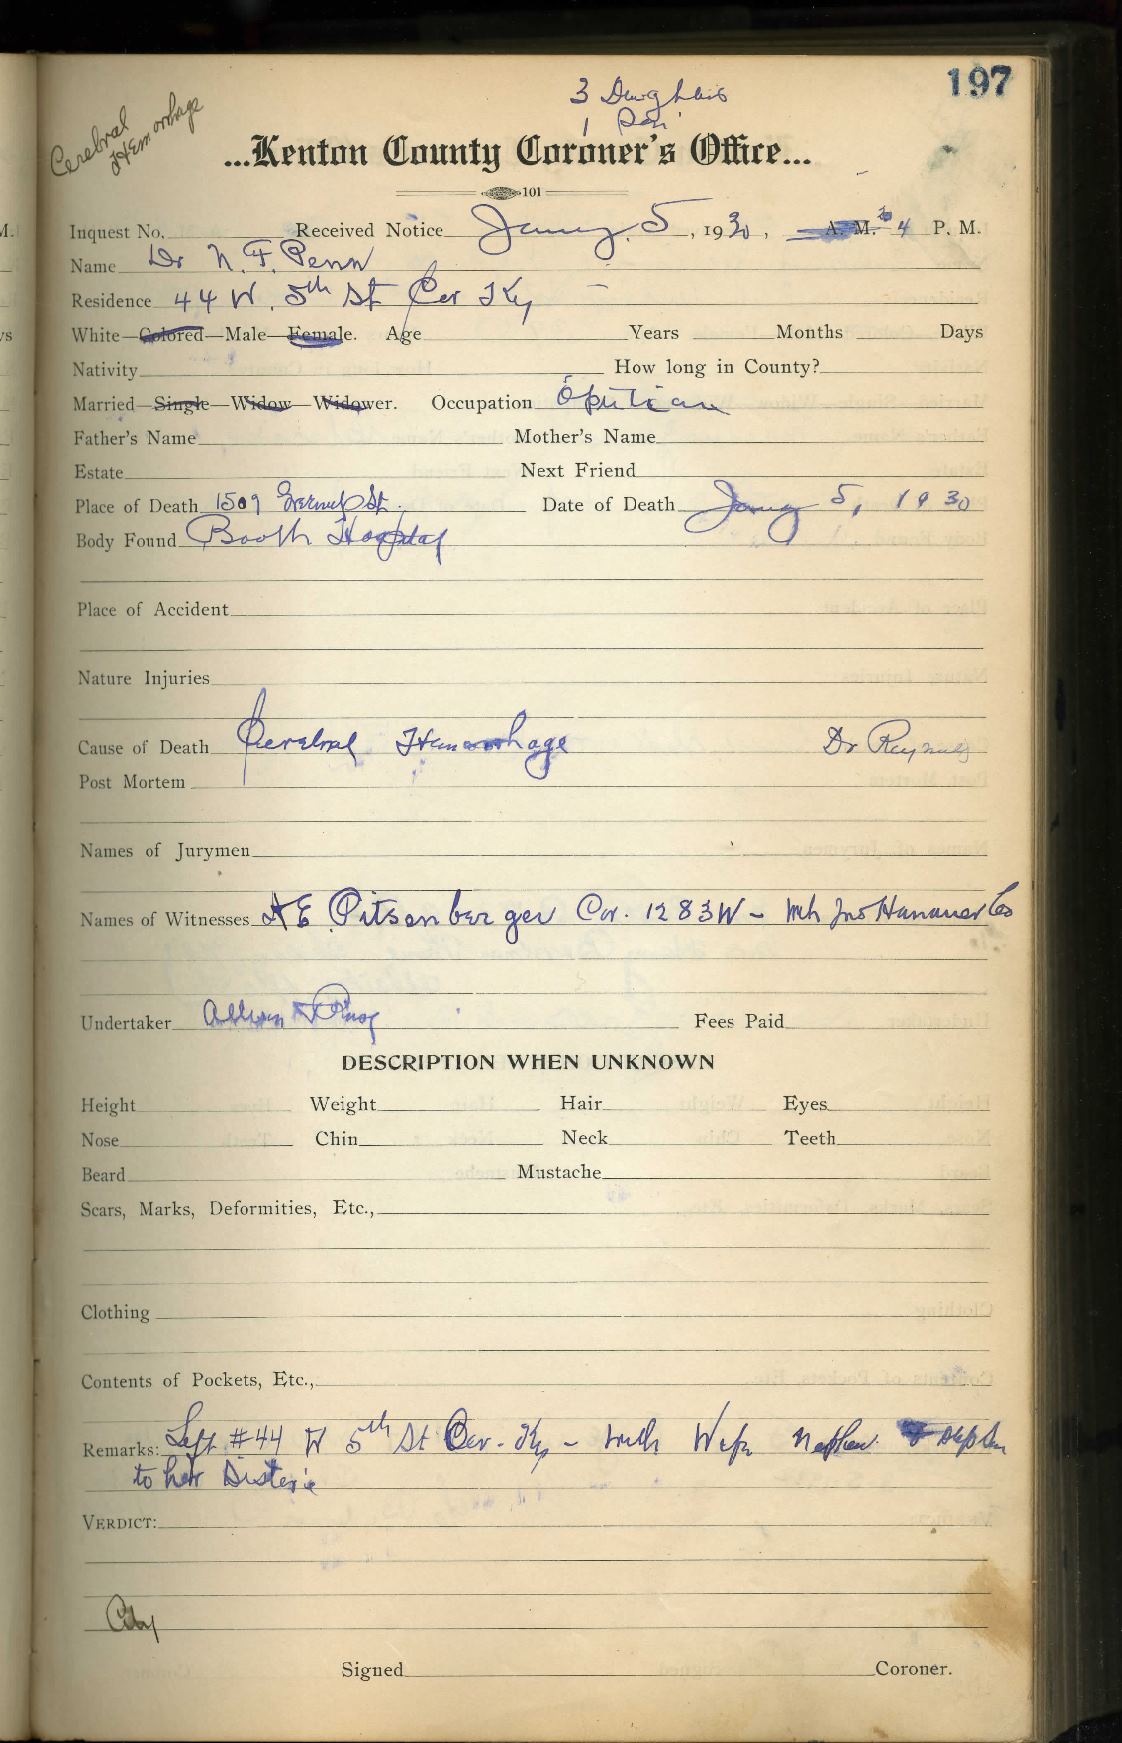 197
3 Daughters
1 Son
Cerebral
Hemorrhage
...Kenton County Coroner's Office...
101
Inquest No. Received Notice Jany. 5, 1930, A. M. 4 P. M.
Name Dr N. F. Penn
Residence 44 W. 5th St Cov Ky
White—Colored—Male—Female. Age Years Months Days
Nativity How long in County?
Married—Single—Widow—Widower. Occupation Optician
Father's Name Mother's Name
Estate Next Friend
Place of Death 1509 St. Date of Death Jany 5, 1930
Body Found Booth Hospital
Place of Accident
Nature Injuries
Cause of Death Cerebral Hemorrhage Dr
Post Mortem
Names of Jurymen
Names of Witnesses E Pitsenberger Cov. 1283W - Jno Hanauer Co
Undertaker Allison &
Fees Paid
DESCRIPTION WHEN UNKNOWN
Height Weight Hair Eyes
Nose Chin Neck Teeth
Beard Mustache
Scars, Marks, Deformities, Etc.,
Clothing
Contents of Pockets, Etc.,
Remarks: Left #44 W 5th St Cov. Ky - with Wife Nephew
to her Sister's
VERDICT:
City
Signed Coroner.